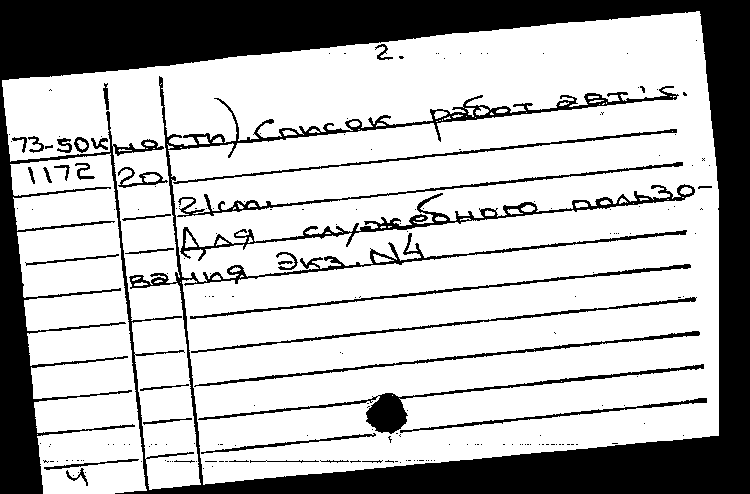 2.
73-50к ности). Список работ авт: с.
1172 20.
21см.
Для служебного пользо-
вания Экз. N4
ч